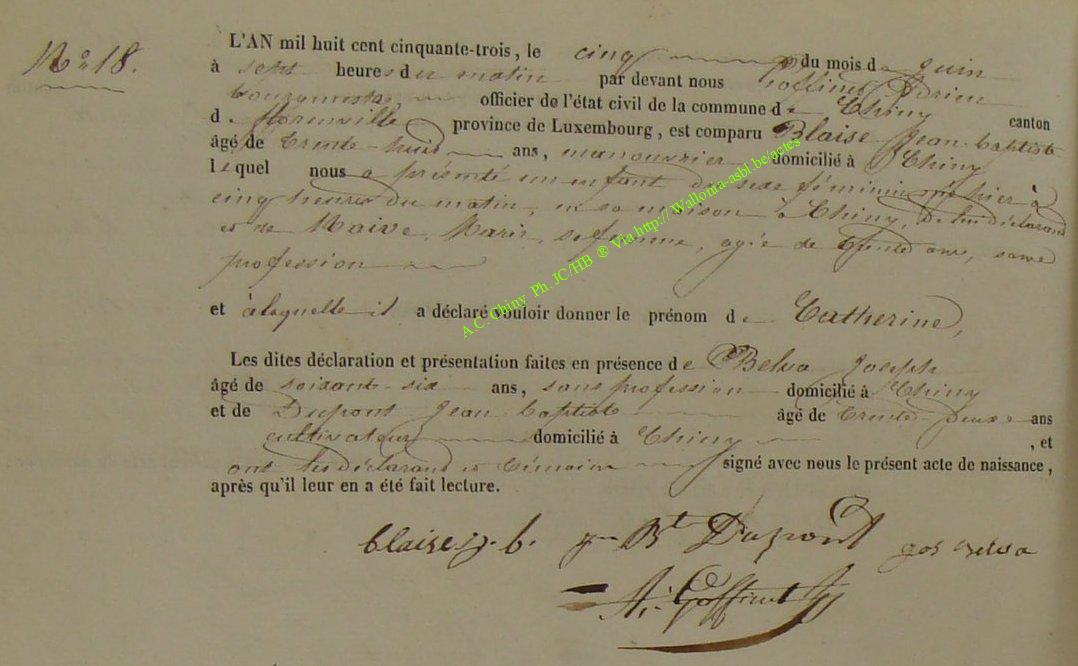 N° 18.
L'AN mil huit cent cinquante-trois, le cinq du mois de Juin
à sept heures du matin par devant nous Goffinet Adrien
bourgmestre, officier de l'état civil de la commune de Chiny canton
de Florenville province de Luxembourg, est comparu Blaise Jean-baptiste
âgé de trente-huit ans, manouvrier domicilié à Chiny
lequel nous a présenté un enfant du sexe féminin né hier à
cinq heures du matin, en sa maison à Chiny, de lui déclarant
et de Marie, sa femme, agée de trente ans, sans
profession
et à laquelle il a déclaré vouloir donner le prénom de Catherine,
Les dites déclaration et présentation faites en présence de Belva Joseph
âgé de soixante-six ans, sans profession domicilié à Chiny
et de Dupont Jean baptiste âgé de trente deux ans
cultivateur domicilié à Chiny , et
ont les déclarant et témoins signé avec nous le présent acte de naissance,
après qu'il leur en a été fait lecture.
blaise j. b. Bt Dupont jos belva
A. Goffinet
A.C. Chiny Ph. JC/HB ® Via http://Wallonia-asbl.be/actes